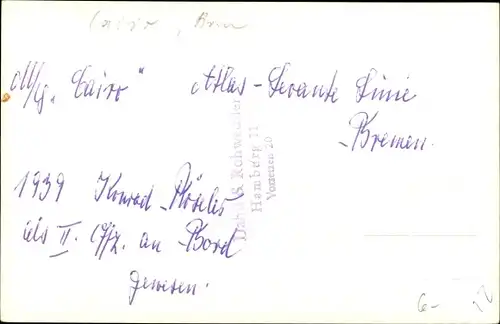 Cairo, Brem
M/S „Cairo“ Atlas-Levante Linie
Bremen.
1939 Konrad
als II. Offz. an Bord
gewesen.
Hamburg 11
Vorsetzen 20
6-
12